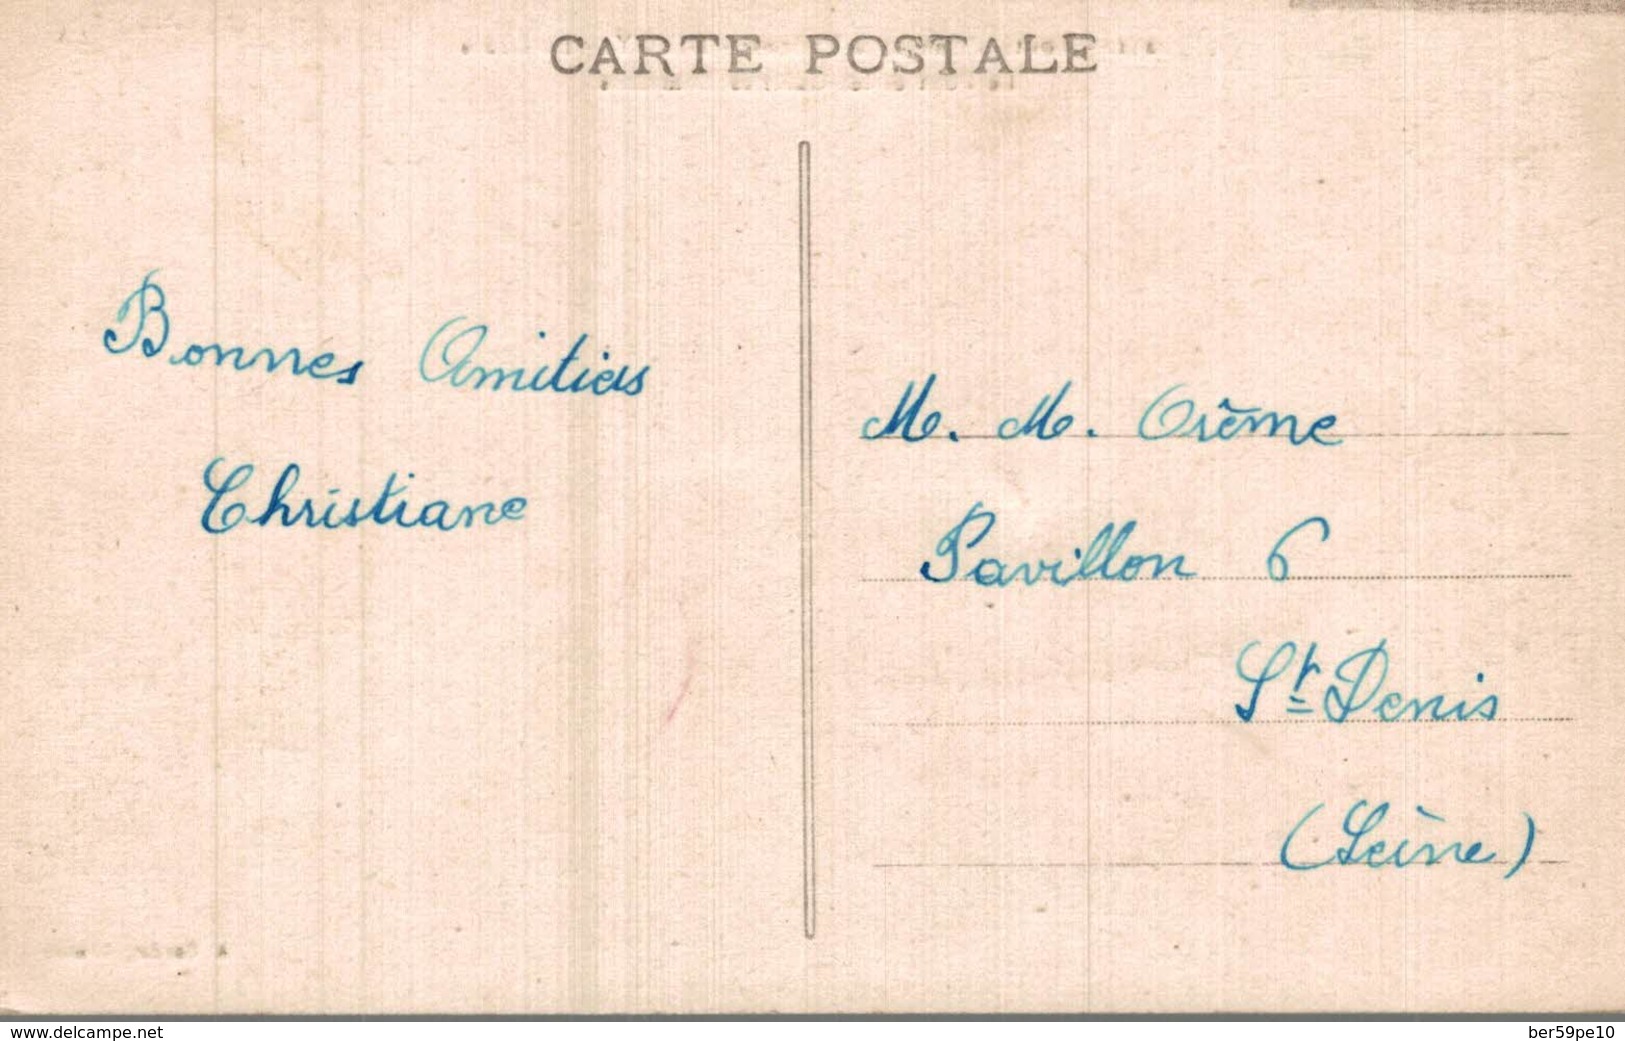 CARTE POSTALE
Bonnes Amitiés
Christiane
M. M. Orème
Pavillon 6
St Denis
(Seine)
www.delcampe.net
ber59pe10